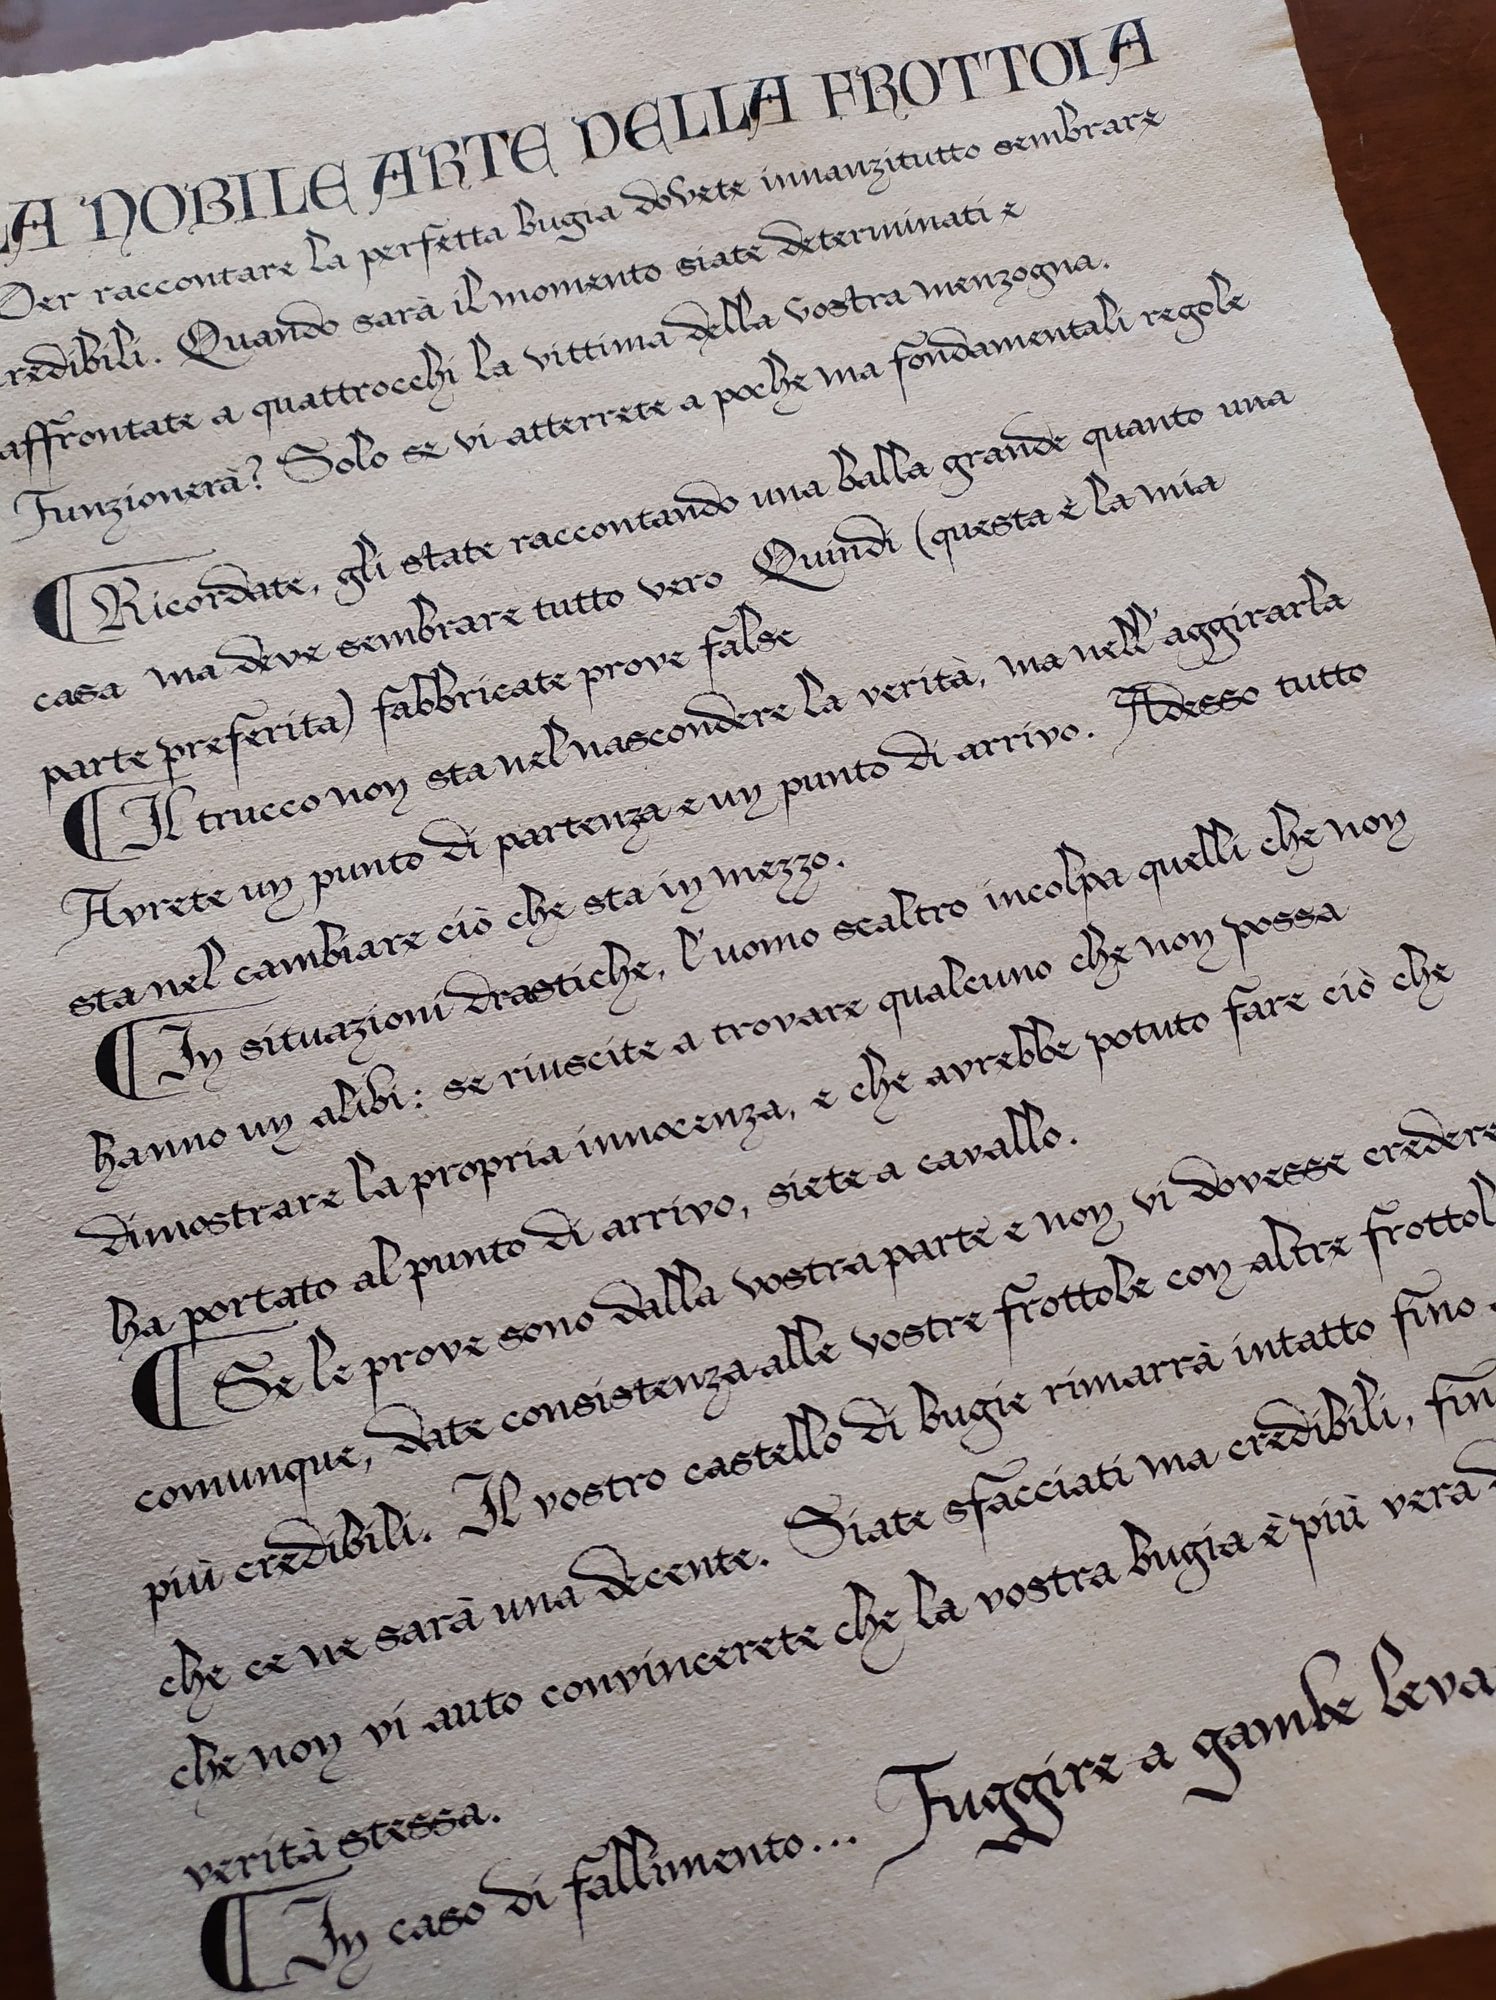 LA NOBILE ARTE DELLA FROTTOLA
Per raccontare la perfetta bugia dovete innanzitutto sembrare
credibili. Quando sarà il momento siate determinati e
affrontate a quattrocchi la vittima della vostra menzogna.
Funzionerà? Solo se vi atterrete a poche ma fondamentali regole
Ricordate, gli state raccontando una balla grande quanto una
casa ma deve sembrare tutto vero Quindi (questa è la mia
parte preferita) fabbricate prove false
Il trucco non sta nel nascondere la verità, ma nell'aggirarla
Avrete un punto di partenza e un punto di arrivo. Adesso tutto
sta nel cambiare ciò che sta in mezzo.
In situazioni drastiche, l'uomo scaltro incolpa quelli che non
hanno un alibi: se riuscite a trovare qualcuno che non possa
dimostrare la propria innocenza, e che avrebbe potuto fare ciò che
ha portato al punto di arrivo, siete a cavallo.
Se le prove sono dalla vostra parte e non vi dovesse credere
comunque, date consistenza alle vostre frottole con altre frottol
più credibili. Il vostro castello di bugie rimarrà intatto fino
che ce ne sarà una decente. Siate sfacciati ma credibili, fin
che non vi auto convincerete che la vostra bugia è più vera d
verità stessa.
In caso di fallimento... Fuggire a gambe leva